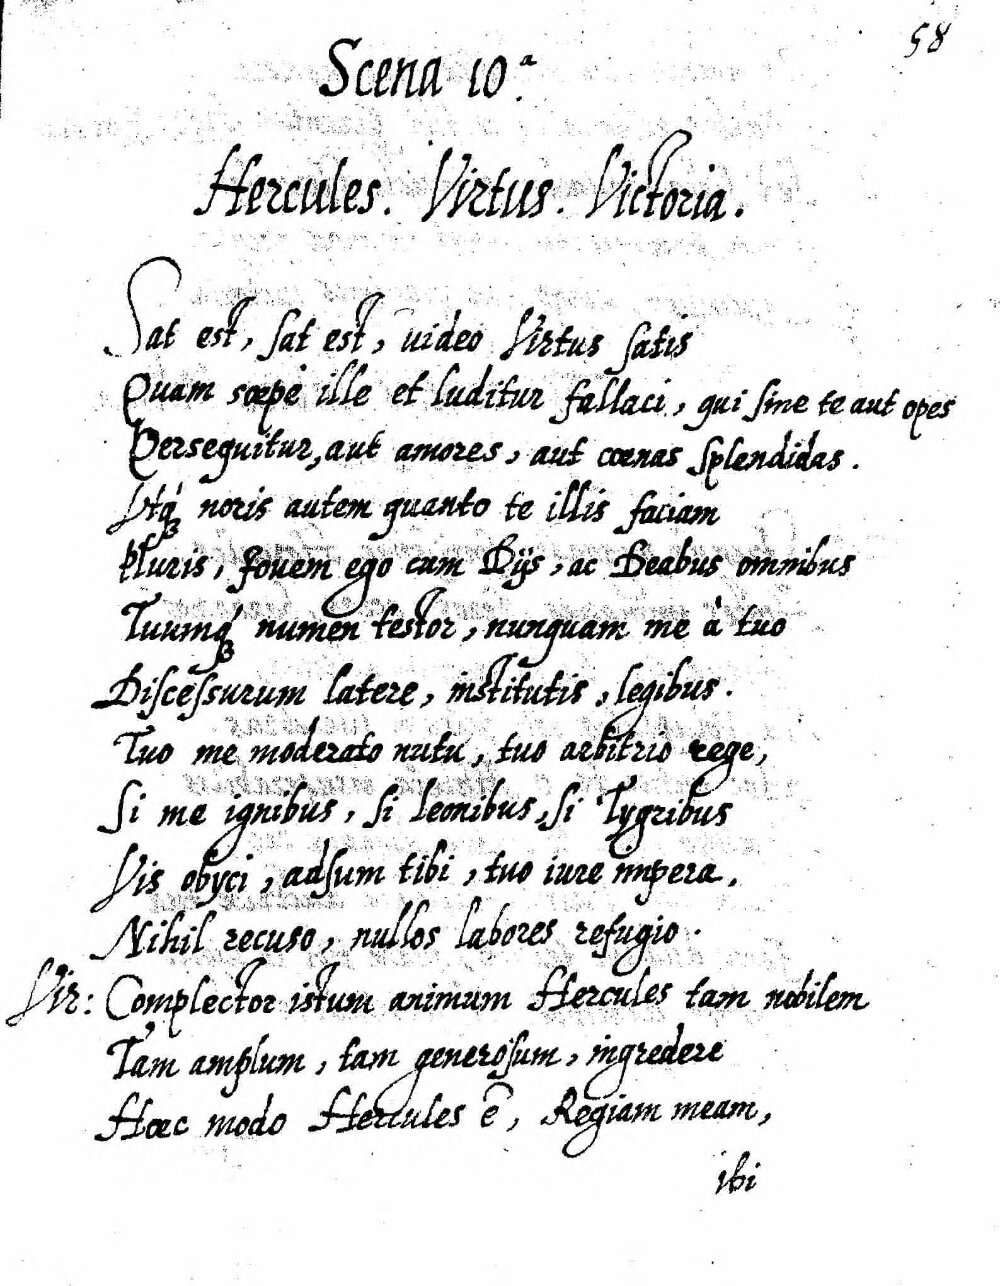 58
Scena 10.ª
Hercules. Virtus. Victoria.
Sat est, sat est, uideo Virtus satis
Quam sæpè ille et luditur fallaci, qui sine te aut opes
Persequitur, aut amores, aut cœnas splendidas.
Vtq́ꝫ noris autem quanto te illis faciam
Pluris, Iouem ego cum Dijs, ac Deabus omnibus
Tuumq́ꝫ numen testor, nunquam me à tuo
Discessurum latere, institutis, legibus.
Tuo me moderato nutu, tuo arbitrio rege,
Si me ignibus, si leonibus, si Tygribus
Vis obijci, adsum tibi, tuo iure impera.
Nihil recuso, nullos labores refugio.
Vir: Complector istum animum Hercules tam nobilem
Tam amplum, tam generosum, ingredere
Hæc modo Hercules ē, Regiam meam,
ibi